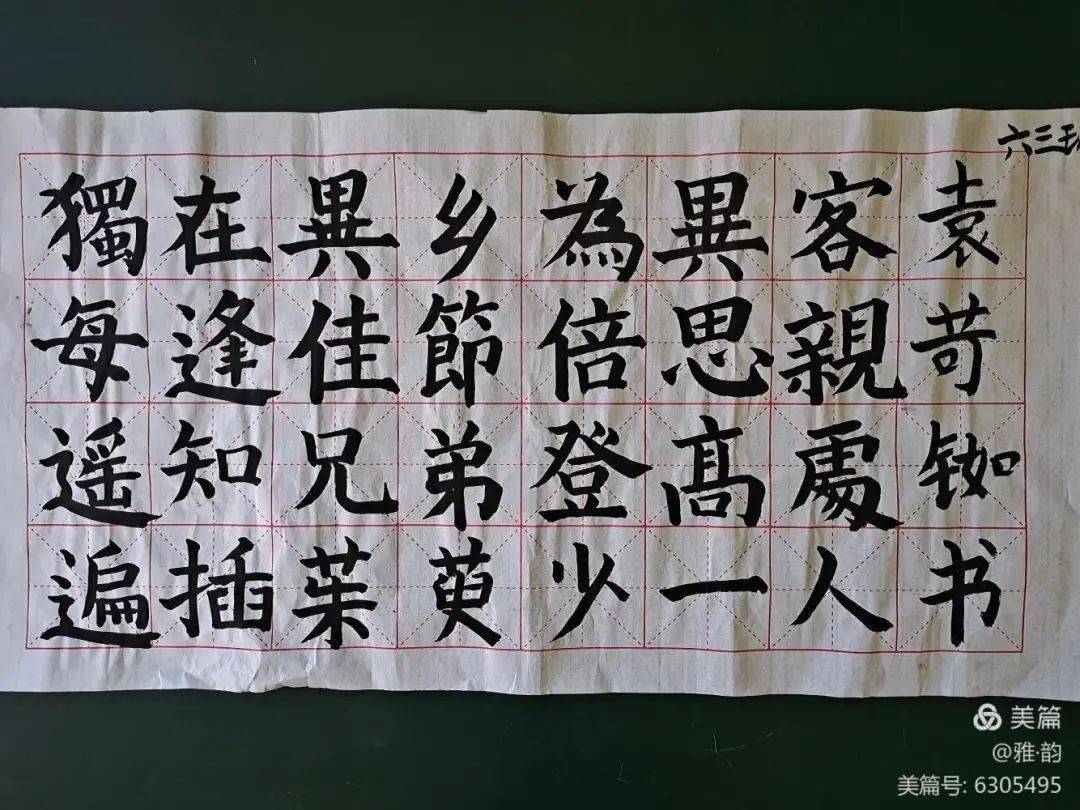 六三
獨在異乡為異客
每逢佳節倍思親
遥知兄弟登髙處
遍插茱萸少一人
袁苛铷书
美篇
@雅·韵
美篇号: 6305495